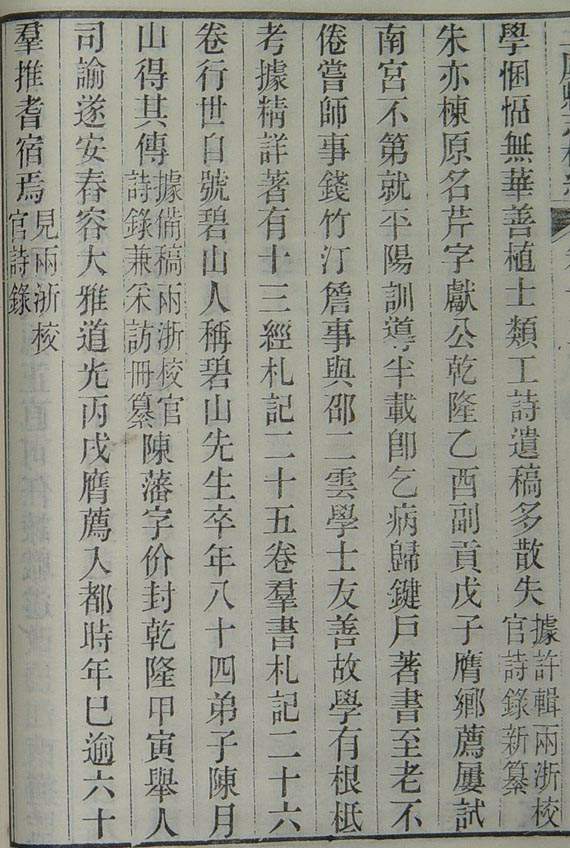 學悃愊無華善植士類工詩遺稿多散失據許輯兩浙校官詩錄新纂
朱亦棟原名芹字獻公乾隆乙酉副貢戊子膺鄉薦屢試
南宮不第就平陽訓導半載卽乞病歸鍵戶著書至老不
倦嘗師事錢竹汀詹事與邵二雲學士友善故學有根柢
考據精詳著有十三經札記二十五卷羣書札記二十六
卷行世自號碧山人稱碧山先生卒年八十四弟子陳月
山得其傳據備稿兩浙校官詩錄兼采訪冊纂陳藩字价封乾隆甲寅舉人
司諭遂安春容大雅道光丙戌膺薦入都時年已逾六十
羣推耆宿焉見兩浙校官詩錄